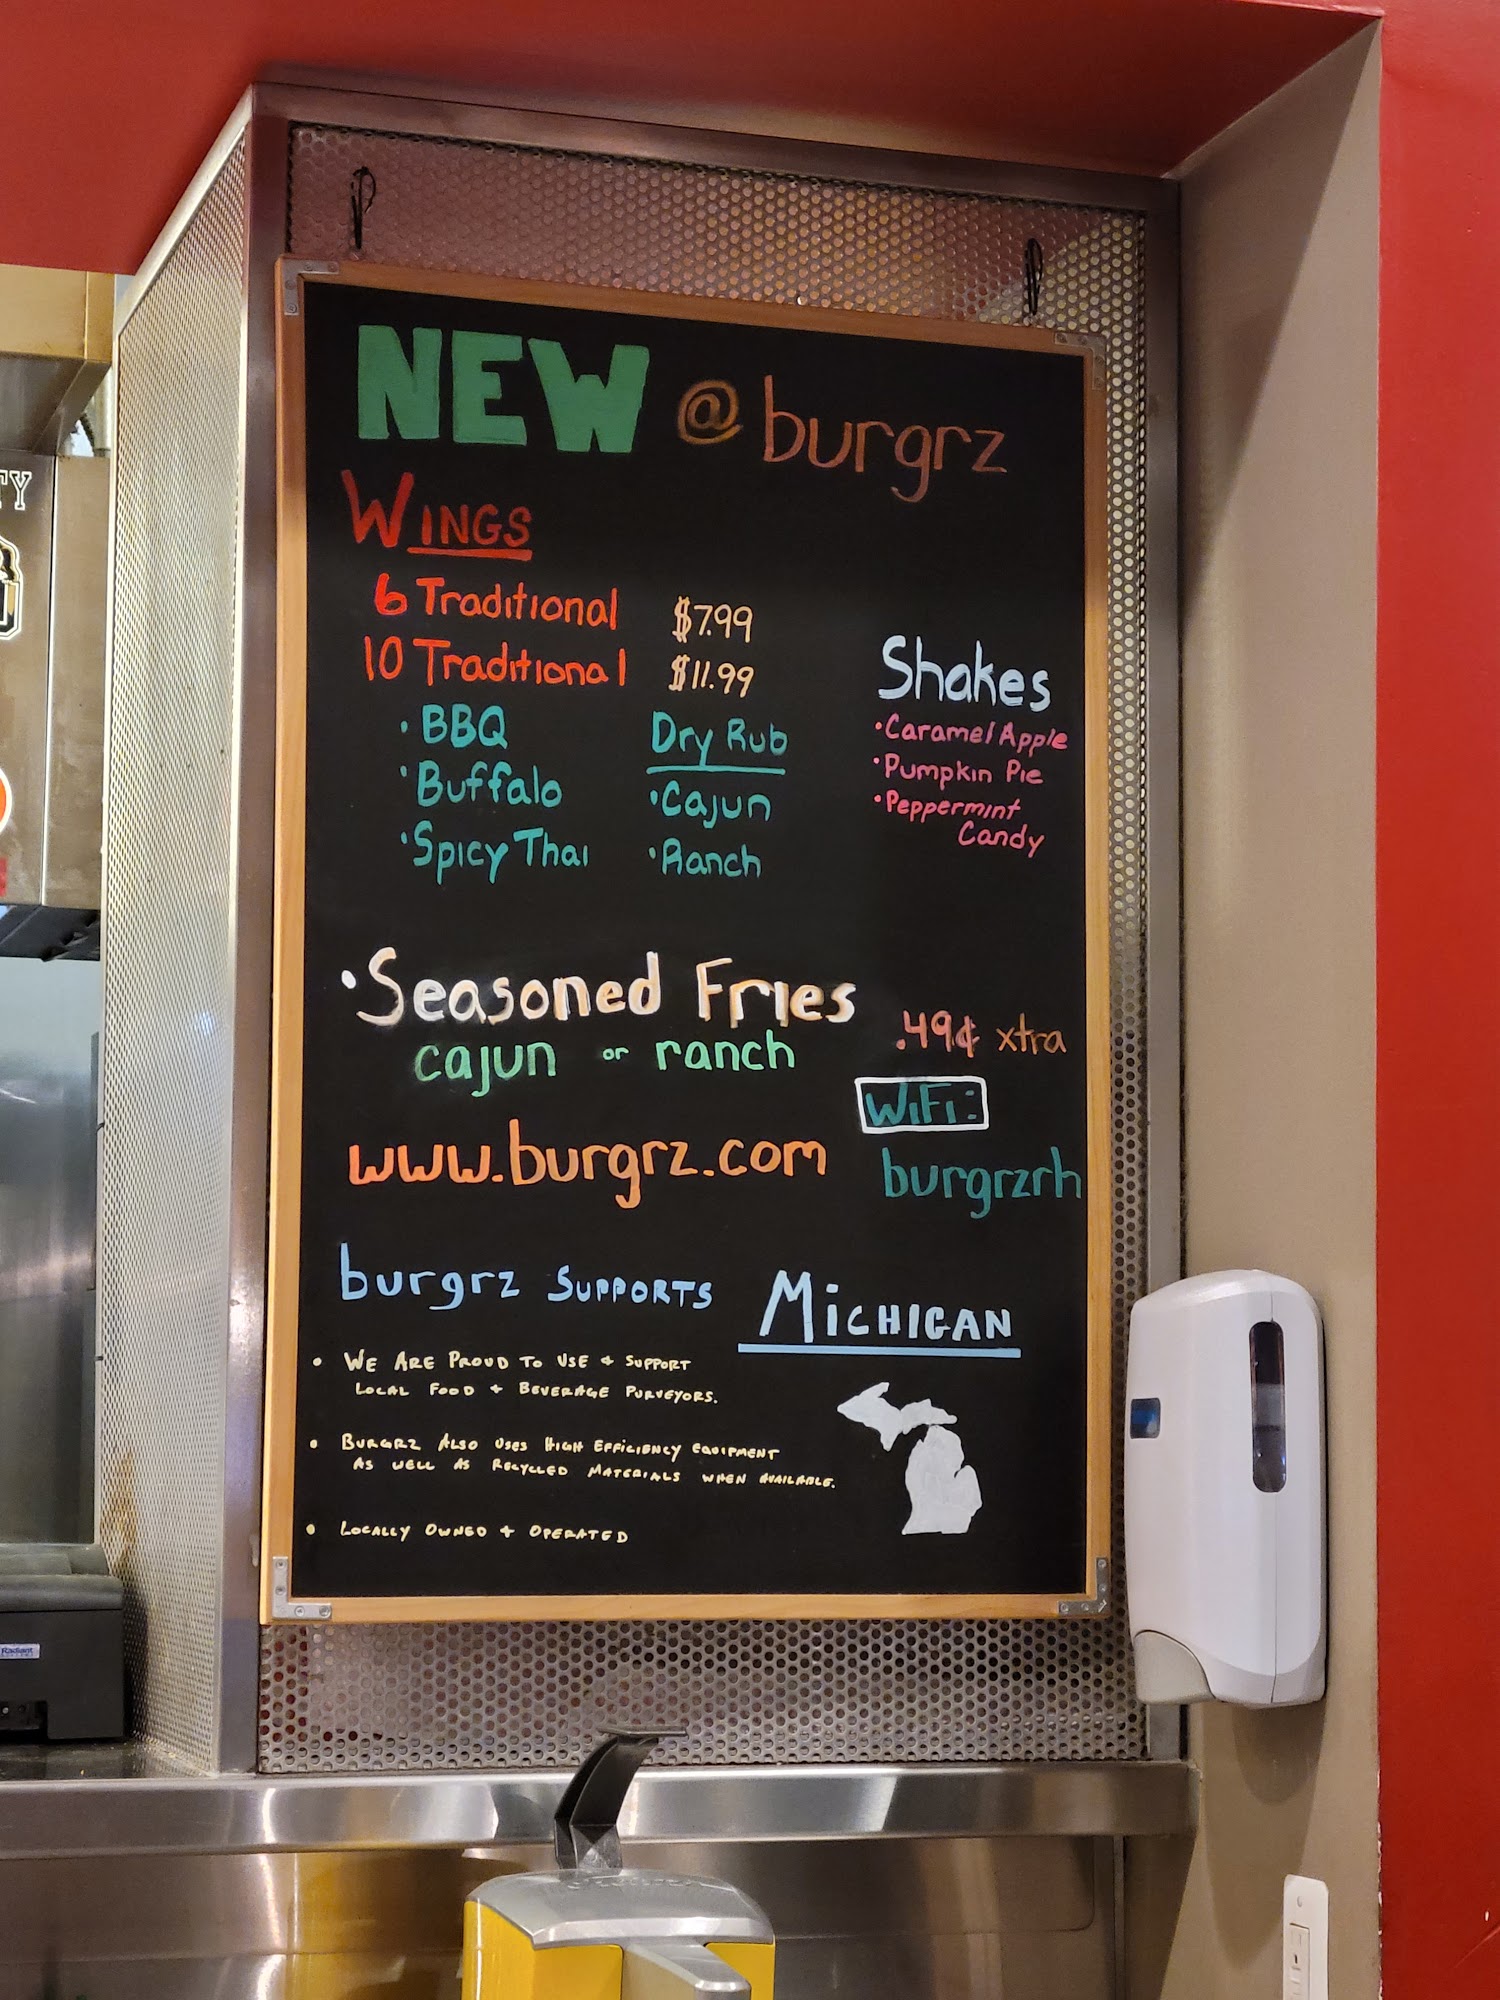 NEW @ burgrz
WINGS
6 Traditional $7.99
10 Traditional $11.99
• BBQ
• Buffalo
• Spicy Thai
Dry Rub
• Cajun
• Ranch
Shakes
• Caramel Apple
• Pumpkin Pie
• Peppermint
Candy
• Seasoned Fries
cajun or ranch
.49¢ xtra
WiFi:
burgrzrh
www.burgrz.com
burgrz SUPPORTS MiCHIGAN
• WE ARE PROUD TO USE + SUPPORT
LOCAL FOOD + BEVERAGE PURVEYORS.
• BURGRZ ALSO USES HIGH EFFICIENCY EQUIPMENT
AS WELL AS RECYCLED MATERIALS WHEN AVAILABLE.
• LOCALLY OWNED + OPERATED
TY
Radiant